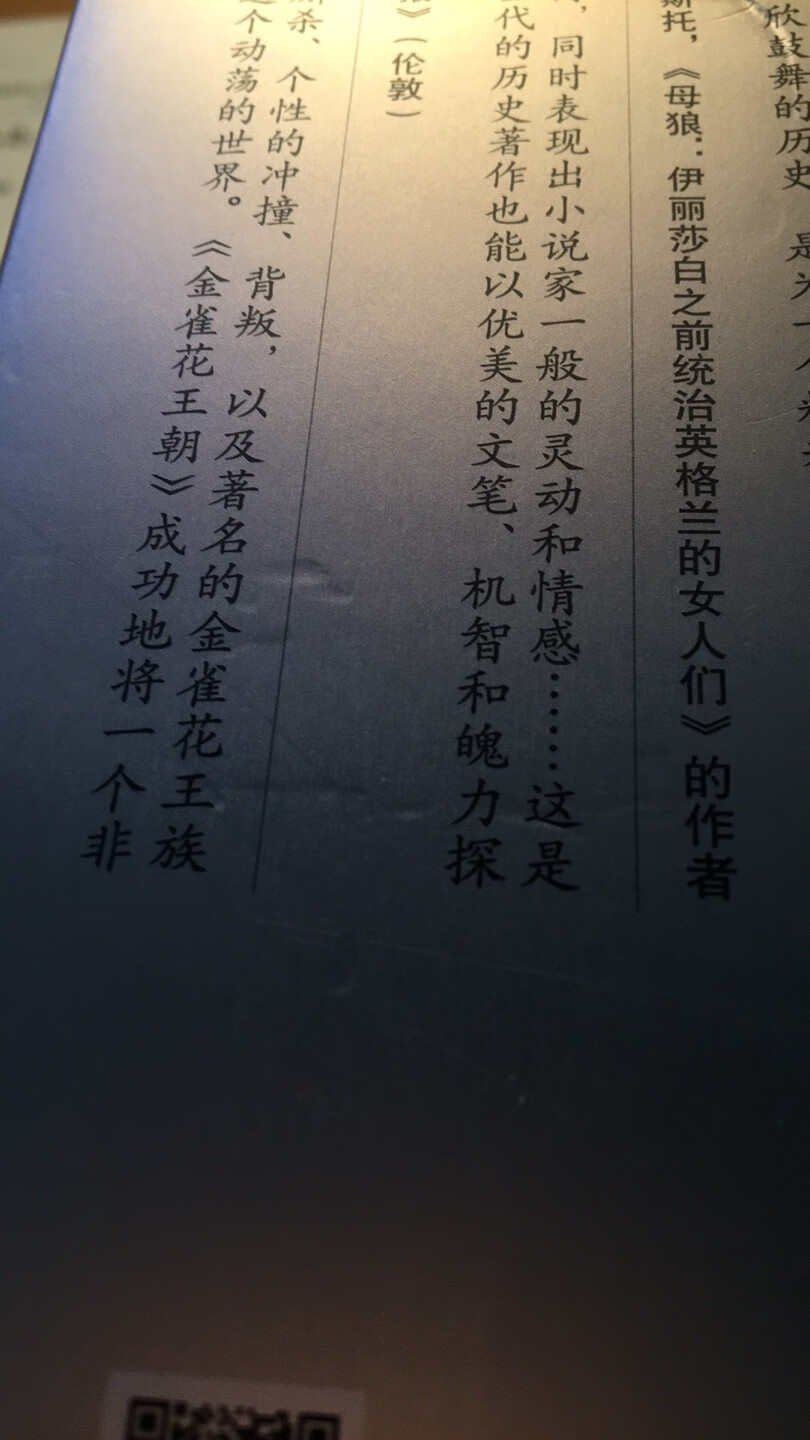 欣鼓舞的历史
斯托，《母狼：伊丽莎白之前统治英格兰的女人们》的作者
，同时表现出小说家一般的灵动和情感……这是
代的历史著作也能以优美的文笔、机智和魄力探
》（伦敦）
杀、个性的冲撞、背叛，以及著名的金雀花王族
个动荡的世界。《金雀花王朝》成功地将一个非